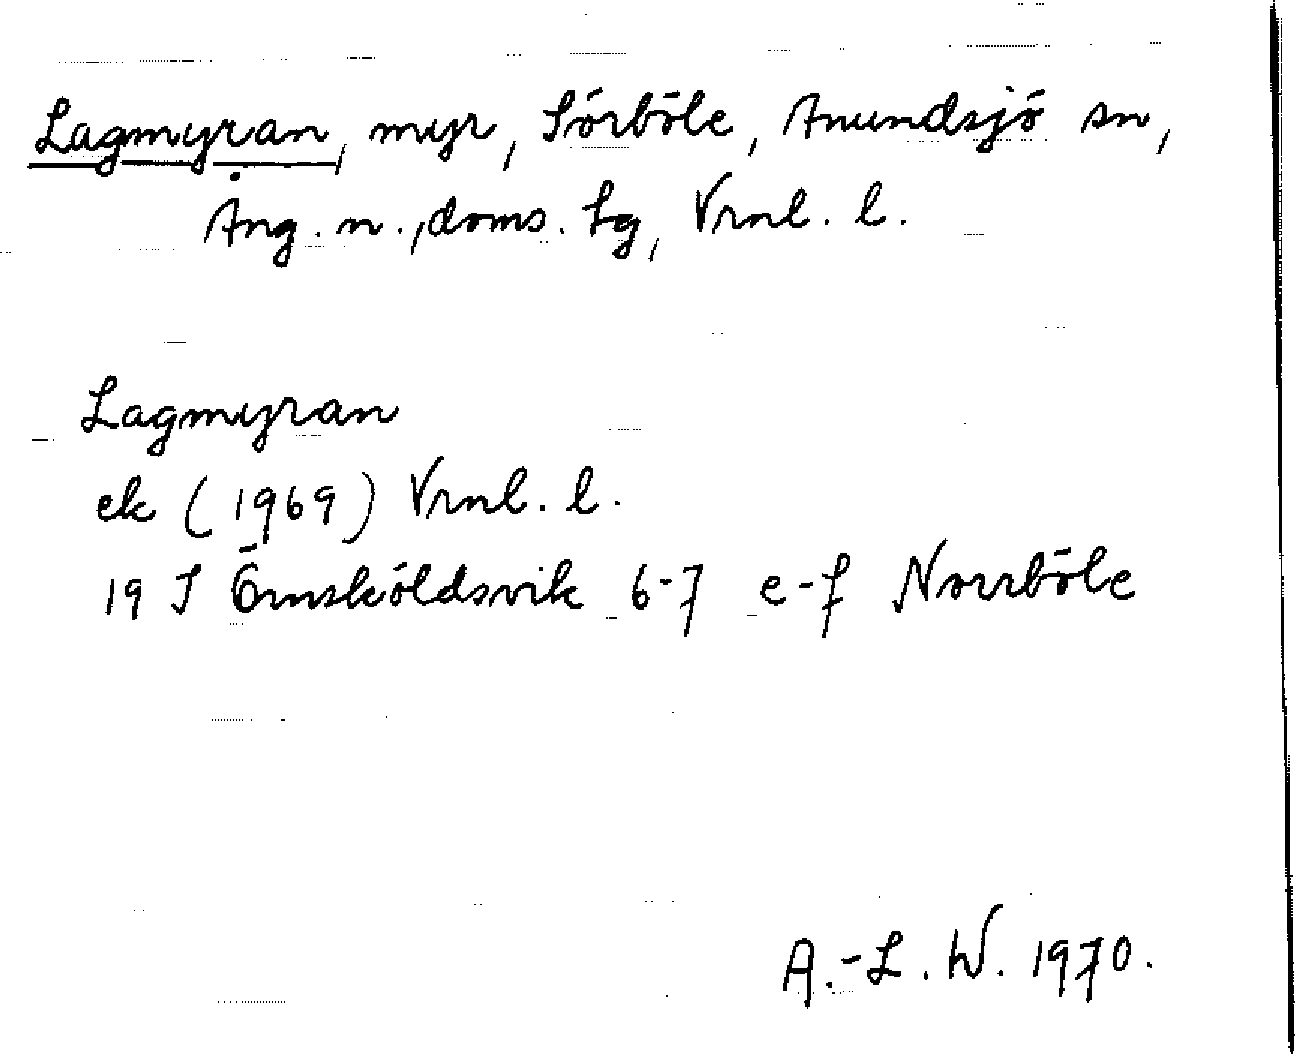 Lagmyran, myr, Sörböle, Anundsjö sn,
Ång. n., doms. lg, Vrnl. l.
Lagmyran
ek (1969) Vrnl. l.
19 J Örnsköldsvik 6-7 e-f Norrböle
A.-L. W. 1970.